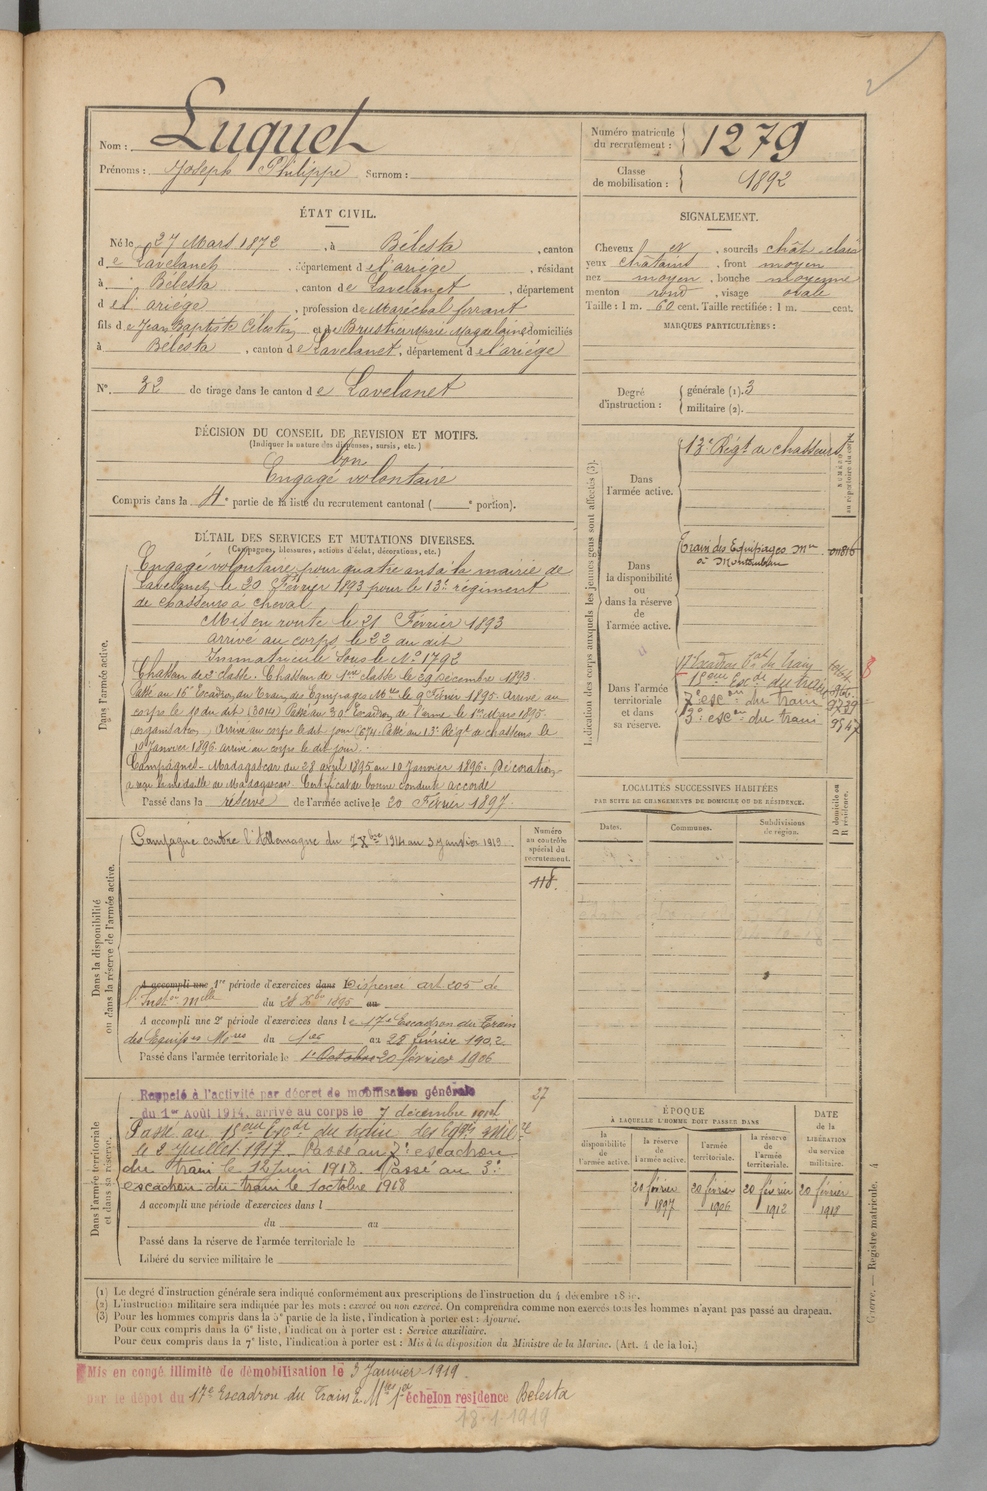 Nom : Luquet
Prénoms : Joseph Philippe Surnom :
Numéro matricule
du recrutement : 1279
Classe
de mobilisation : 1892
ÉTAT CIVIL.
Né le 27 Mars 1872, à Bélesta, canton
de Lavelanet, département de l'ariége, résidant
à Bélesta, canton de Lavelanet, département
de l'ariége, profession de Maréchal ferrant
fils de Jean Baptiste Célestin et de Brustier Marie Magdelaine domiciliés
à Bélesta, canton de Lavelanet, département de l'ariége
N° 32 de tirage dans le canton de Lavelanet
SIGNALEMENT.
Cheveux et, sourcils chât. clair
yeux châtains, front moyen
nez moyen, bouche moyenne
menton rond, visage ovale
Taille : 1 m. 60 cent. Taille rectifiée : 1 m. cent.
MARQUES PARTICULIÈRES :
Degré
d'instruction :
générale (1). 3
militaire (2).
DÉCISION DU CONSEIL DE REVISION ET MOTIFS.
(Indiquer la nature des dispenses, sursis, etc.)
bon
Engagé volontaire
Compris dans la 4e partie de la liste du recrutement cantonal ( e portion).
DÉTAIL DES SERVICES ET MUTATIONS DIVERSES.
(Campagnes, blessures, actions d'éclat, décorations, etc.)
Dans l'armée active.
Engagé volontaire pour quatre ans à la mairie de
Lavelanet le 20 Février 1893 pour le 13e régiment
de chasseurs à cheval
Mis en route le 21 Février 1893
arrivé au corps le 22 au dit
Immatriculé sous le No 1792
Chasseur de 2e classe. Chasseur de 1ere classe le 29 Décembre 1893
Passé au 16e Escadron du Train des Equipages Mres le 9 Février 1895. Arrivé au
corps le 10 du dit (3014) Passé au 30e Escadron de l'arme le 1er Mars 1895
(organisation) arrivé au corps le dit jour (674. Passé au 13e Régt de chasseurs le
10 Janvier 1896 arrivé au corps le dit jour.
Campagnes - Madagascar du 28 avril 1895 au 10 Janvier 1896. Décoration
a reçu la médaille de Madagascar. Certificat de bonne conduite accordé
Passé dans la réserve de l'armée active le 20 Février 1897.
Dans la disponibilité
ou dans la réserve de l'armée active.
Campagne contre l'Allemagne du 7 Xbre 1914 au 3 janvier 1919.
Numéro
au contrôle
spécial du
recrutement.
118
A accompli une 1re période d'exercices dans Dispensé art 205 de
l'Inston mlle du 28 Xbre 1895 au
A accompli une 2e période d'exercices dans le 17e Escadron du Train
des Equipes Mres du 1er au 28 février 1902
Passé dans l'armée territoriale le 1er Octobre 20 février 1906
Dans l'armée territoriale
et dans sa réserve.
Rappelé à l'activité par décret de mobilisation générale
du 1er Août 1914, arrivé au corps le 7 décembre 1914
27
Passé au 15eme Escon du train des Eqges Mil
le 2 Juillet 1917. Passé au 7e escadron
du train le 12 juin 1918. Passé au 3e
escadron du train le 1 octobre 1918
A accompli une période d'exercices dans l
du au
Passé dans la réserve de l'armée territoriale le
Libéré du service militaire le
Indication des corps auxquels les jeunes gens sont affectés (3).
Dans
l'armée active.
13e Régt de chasseurs
NUMÉRO
au répertoire du corps
Dans
la disponibilité
ou
dans la réserve
de
l'armée active.
Train des Equipages Mres
à Montauban
Dans l'armée
territoriale
et dans
sa réserve.
17e Escadron tal du Train
15eme Escon du train
7e escon du train 9739
3e escon du train 9547
8
LOCALITÉS SUCCESSIVES HABITÉES
PAR SUITE DE CHANGEMENTS DE DOMICILE OU DE RÉSIDENCE.
Dates. Communes. Subdivisions
de région.
D domicile ou
R résidence.
ÉPOQUE
À LAQUELLE L'HOMME DOIT PASSER DANS
DATE
de la
LIBÉRATION
du service
militaire.
la
disponibilité
de
l'armée active.
la réserve
de
l'armée active.
l'armée
territoriale.
la réserve
de
l'armée
territoriale.
20 février 1897
20 février 1906
20 février 1912
20 février 1918
(1) Le degré d'instruction générale sera indiqué conformément aux prescriptions de l'instruction du 4 décembre 1889.
(2) L'instruction militaire sera indiquée par les mots : exercé ou non exercé. On comprendra comme non exercés tous les hommes n'ayant pas passé au drapeau.
(3) Pour les hommes compris dans la 5e partie de la liste, l'indication à porter est : Ajourné.
Pour ceux compris dans la 6e liste, l'indication à porter est : Service auxiliaire.
Pour ceux compris dans la 7e liste, l'indication à porter est : Mis à la disposition du Ministre de la Marine. (Art. 4 de la loi.)
Guerre. — Registre matricule. 4
Mis en congé illimité de démobilisation le 3 Janvier 1919.
par le dépôt du 17e Escadron du Train E. Mres 1er échelon résidence Bélesta
18-1-1919